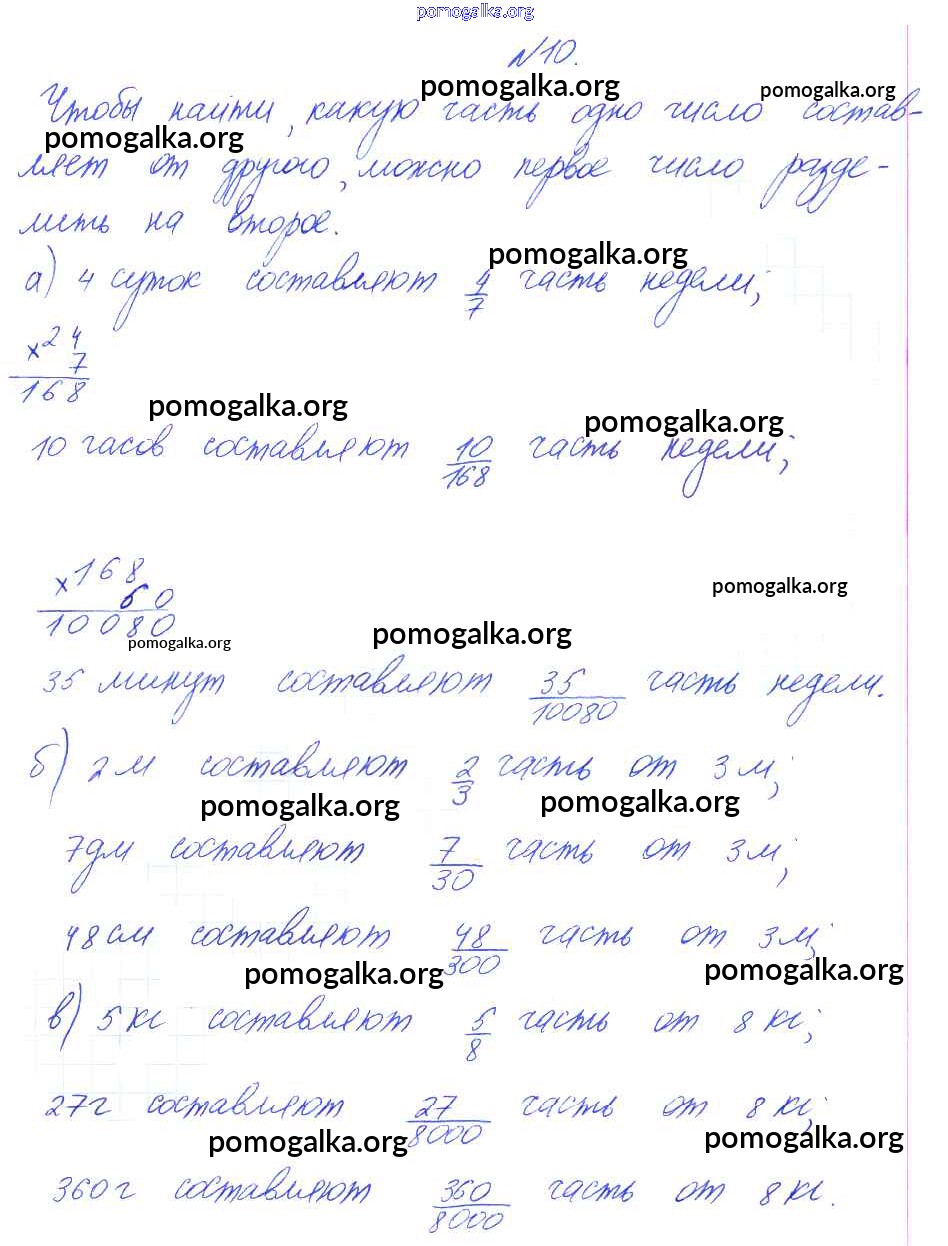 pomogalka.org
№10.
pomogalka.org pomogalka.org
Чтобы найти, какую часть одно число состав-
pomogalka.org
ляет от другого, можно первое число разде-
лить на второе.
pomogalka.org
а) 4 суток составляют 4/7 часть недели;
×24
7
168
pomogalka.org pomogalka.org
10 часов составляют 10/168 часть недели;
×168
60
10080
pomogalka.org
pomogalka.org pomogalka.org
35 минут составляют 35/10080 часть недели.
б) 2 м составляют 2/3 часть от 3 м;
pomogalka.org pomogalka.org
7дм составляют 7/30 часть от 3м;
48 см составляют 48/300 часть от 3м;
pomogalka.org pomogalka.org
в) 5 кг составляют 5/8 часть от 8 кг;
27г составляют 27/8000 часть от 8 кг;
pomogalka.org pomogalka.org
360 г составляют 360/8000 часть от 8 кг.